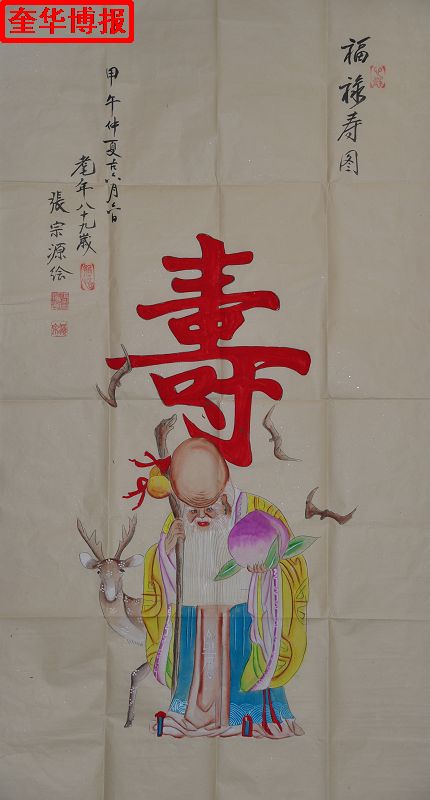 奎华博报
福禄寿图
甲午仲夏古六月六日
老年八十九歲
張宗源绘
壽